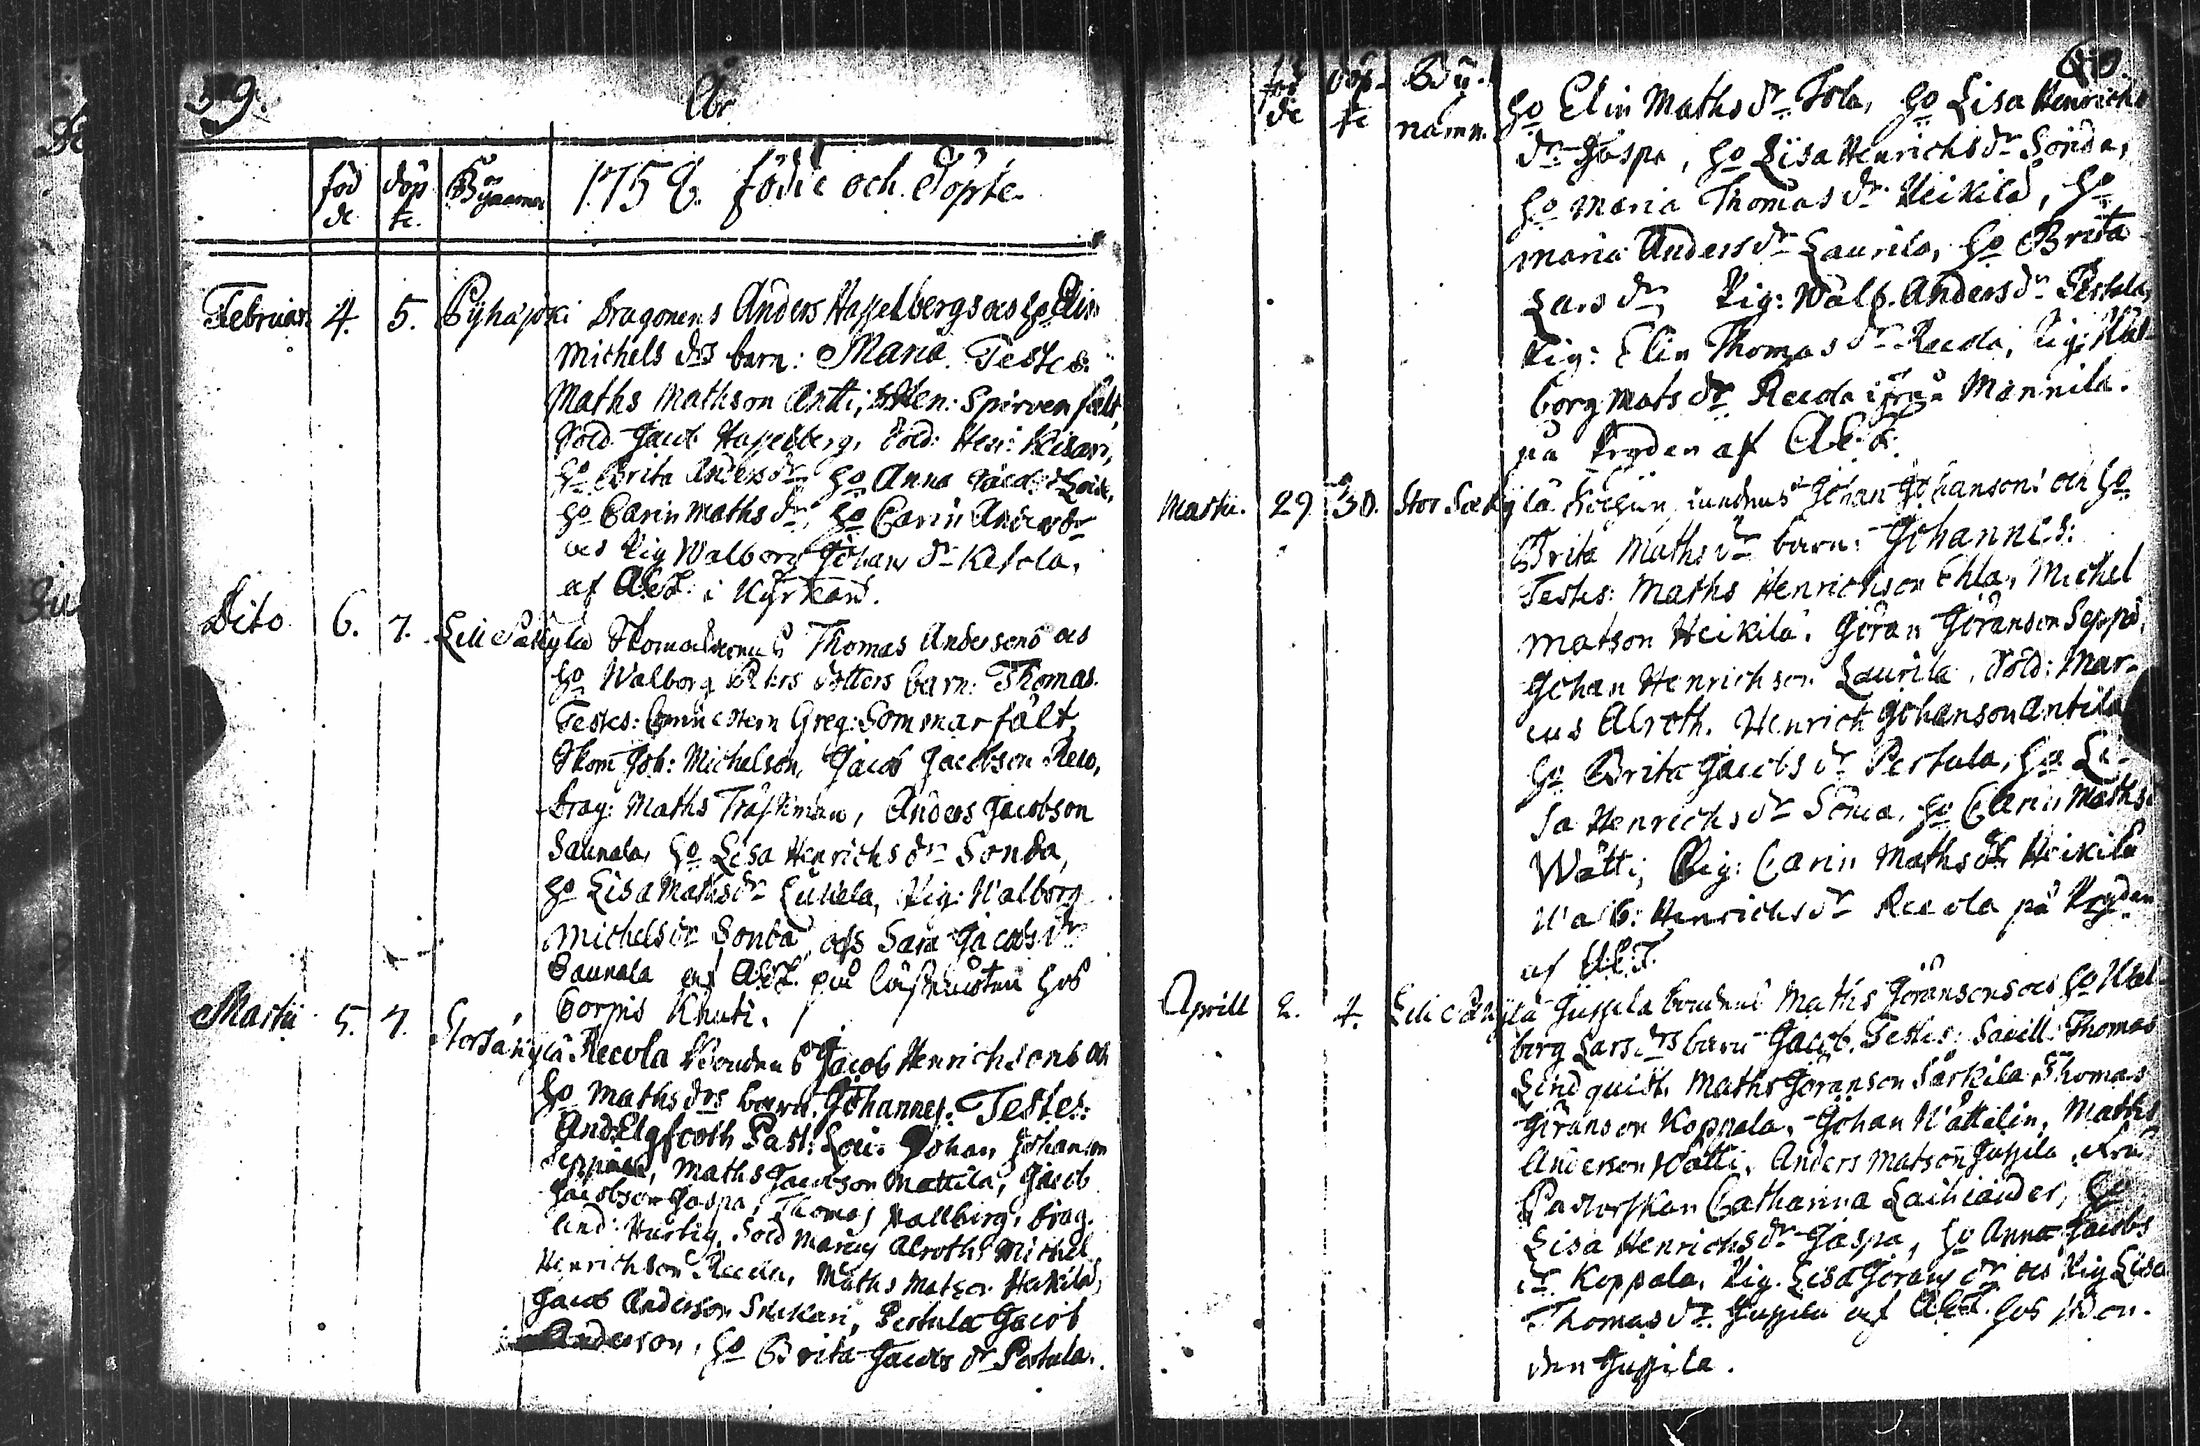 59.
År
föd
de
döp
te.
Bynamn
1758. födde och döpte.
Februar. 4. 5. Pyhäjoki Dragonens Anders Hasselbergs och ho Elin
Michels drs barn: Maria. Testes:
Maths Mathson Antti, Hen: Spirvenfelt,
Sold Jacob Hasselberg, Sold: Hen: Kisari,
ho Brita Anders dr ho Anna
ho Carin Maths dr, ho Carin Anders dr
och Pig Walborg Johans dr Ketola,
af A.E.T. i Kyrkan.
Dito 6. 7. Lill Säkylä Skomakarens Thomas Andersons och
ho Walborg Pehrs dotters barn: Thomas.
Testes: Greg: Sommarfält,
Skom Joh: Michelson, Jacob Jacobson
Drag: Maths Träskman, Anders Jacobson
Saunala, ho Lisa Henrichs dr Sonda,
ho Lisa Maths dr Pig: Walborg
Michels dr Sonda, och Sara Jacobs dr
Saunala af A.E.T. hos
Corpis Knuti.
Martii 5. 7. Stor Säkylä Reeola Bondens Jacob Henrichsons och
ho Maths drs barn: Johannes: Testes:
And: Elgfooth Past: Loci. Johan Johanson
Maths Jacobson Mattila, Jacob
Jacobson Jaspa, Thomas Wallberg, Drag.
And: Hurtig, Sold Marcus Alroth, Michel
Henrichson Reeola, Maths Matson Heikilä,
Jacob Anderson Pertula Jacob
Anderson, ho Brita Jacobs dr Pertula.
60.
föd
de
döp-
te
By.
namn.
ho Elin Maths dr Tola, ho Lisa Henrichs
dr Jaspa, ho Lisa Henrichs dr Sonda,
ho Maria Thomas dr Heikilä, ho
Maria Anders dr Laurila, ho Brita
Lars dr, Pig: Walb. Anders dr Pertula,
Pig: Elin Thomas dr Reeola, Pig: Wal-
borg Mats dr Reeola ifrån Mannila.
på Byden af A.E.T.
Martii. 29 30. Stor Säkylä Johan Johansons och ho
Brita Maths dr barn: Johannes:
Testes: Maths Henrichson Ehla, Michel
Matson Heikilä, Göran Göranson Seppä,
Johan Henrichson Laurila, Sold: Mar-
cus Alroth, Henrich Johanson Antila
ho Brita Jacobs dr Pertula, ho Li-
sa Henrichs dr Sonda, ho Carin Maths
Wätti, Pig: Carin Maths dr Heikilä
Walb: Henrichs dr Reeola på Byden
af A.E.T.
Aprill 2. 4. Lill Säkylä Jussila bondens Maths Göransons och ho Wal-
borg Lars drs barn Jacob. Testes: Thomas
Lindquist, Maths Göranson Särkilä, Thomas
Göranson Koppala, Johan Wättelin, Maths
Anderson Wätti, Anders Matson Jussila, Fru
Pastorskan Catharina ho
Lisa Henrichs dr Jaspa, ho Anna Jacobs
dr Koppala, Pig. Lisa Görans dr och Pig Lisa
Thomas dr Jussila af A.E.T. hos Bon-
den Jussila.